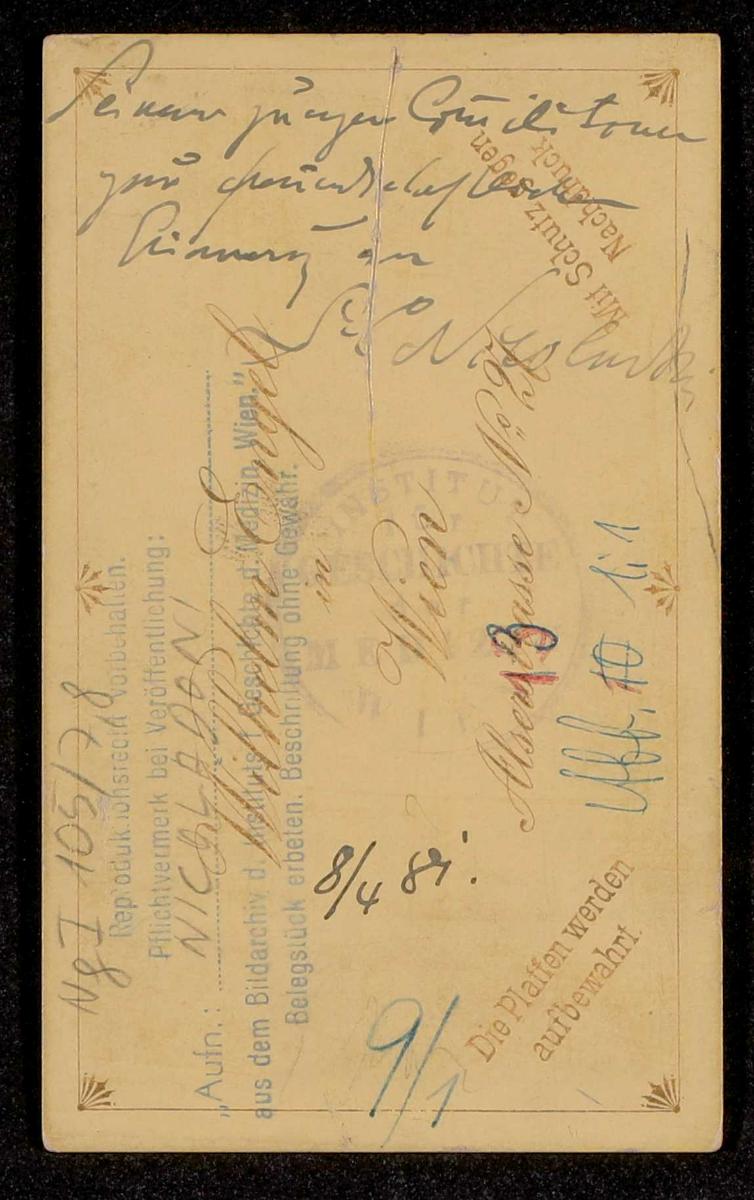 Seinem jungen Comilitonen
zur freundschaftlichen
Erinnerung an
Mit Schutz gegen
Nachdruck
Wilhelm Engel
in
Wien
Alserstrasse No
INSTITUT
für
GESCHICHTE
der
MEDIZIN
Ng I 105/78
Reproduktionsrecht vorbehalten.
Pflichtvermerk bei Veröffentlichung:
NICOLADONI
„Aufn.:
aus dem Bildarchiv d. Instituts f. Geschichte d. Medizin, Wien,"
Belegstück erbeten. Beschriftung ohne Gewähr.
13
Abb. 10
8/4 81.
9/1
Die Platten werden
aufbewahrt.